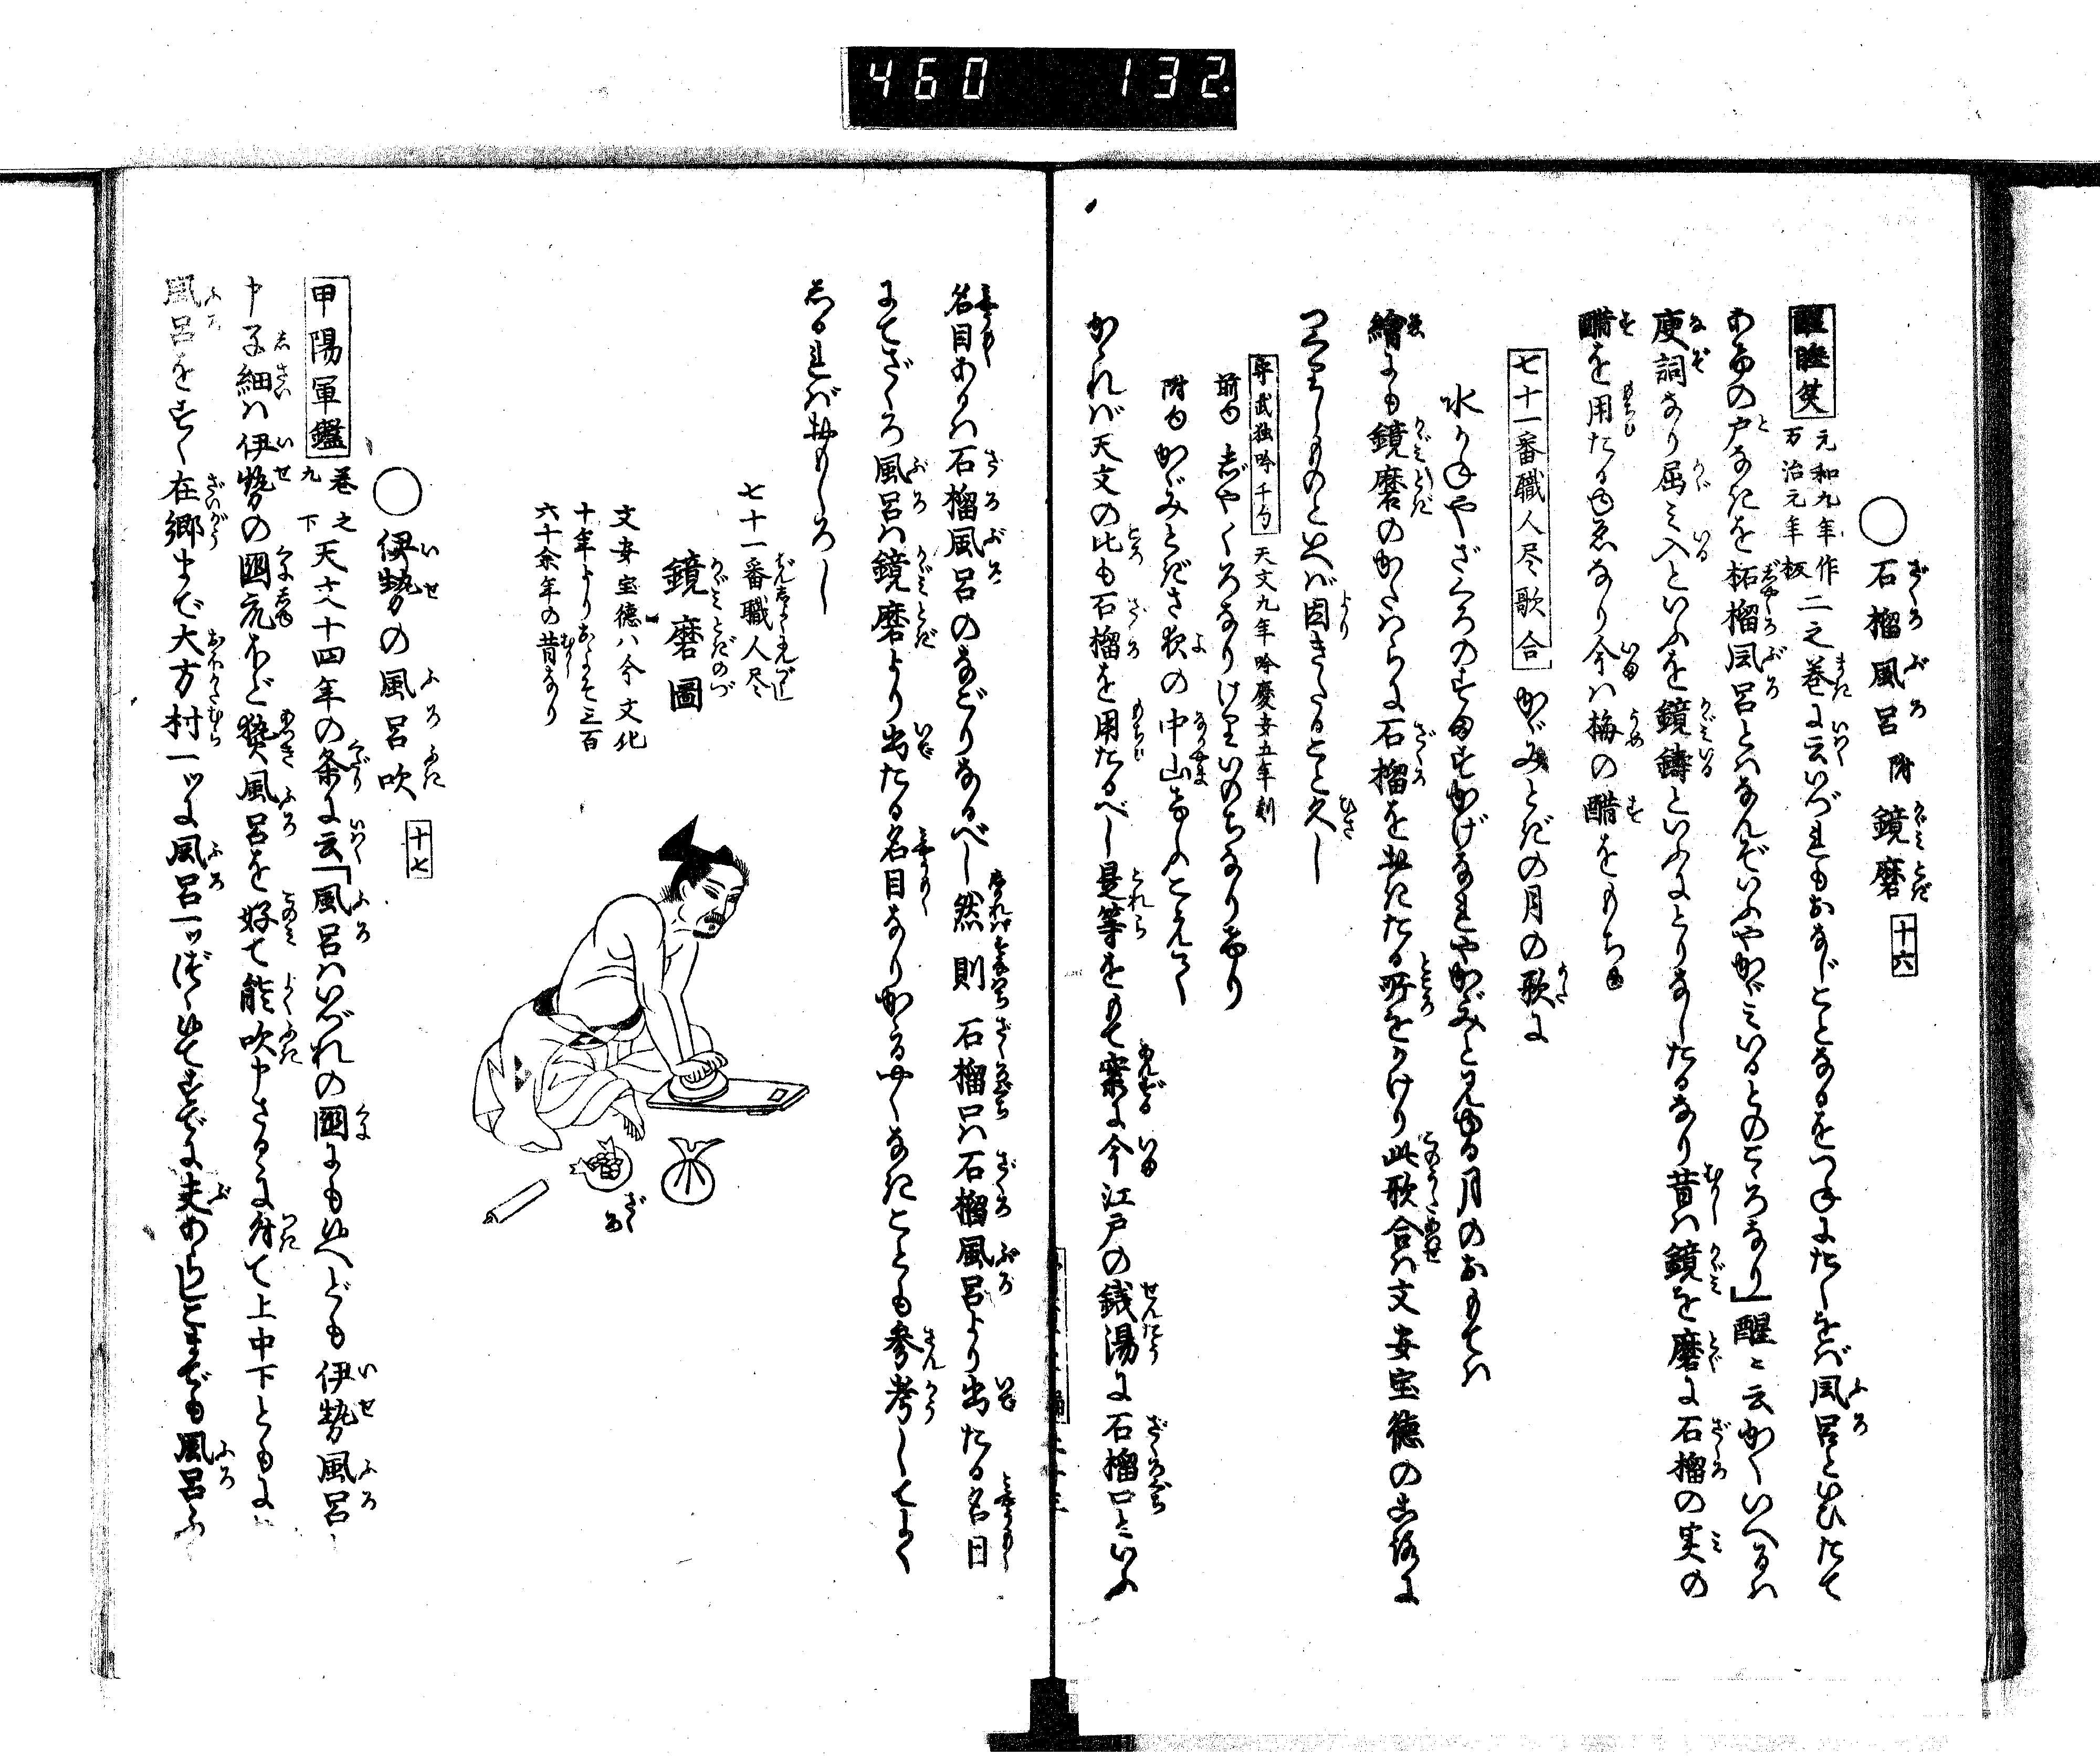 460 132.
○石榴風呂 附 鏡磨 十六
醒睡笑 元和九年作 万治元年板 二之巻に云いづれもおなじことなるをつねにたくをば風呂といひたて
あけの戸なきを柘榴風呂とはなんぞいふやかゞミいるとのこゝろなり」醒々云かくいへるは
廋詞なり屈ミ入といふを鏡鋳といふにとりなしたるなり昔は鏡を磨に石榴の実の
醋を用たるゆゑなり今は梅の醋をもちゆ
七十一番職人尽歌合 かゞみとぎの月の歌に
水かねやざくろのすますかげなれやかゞみと見ゆる月のおもては
繪にも鏡磨のかたはらに石榴を並たる所をかけり此歌合は文安宝徳の
ものといへば因きたること久し
守武独吟千句 天文九年吟慶安五年刻
前句 じやくろなりけりいのちなりけり
附句 かゞみとぎさ夜の中山けふこえて
かゝれば天文の比も石榴を用たるべし是等をもて案に今江戸の銭湯に石榴口といふ
名目あるは石榴風呂のなごりなるべし然則石榴口は石榴風呂より出たる名目
にてざくろ風呂は鏡磨より出たる名目なりかるやくなきことも参考してよく
しるればおもしろし
七十一番職人尽
鏡磨圖
文安宝徳ハ今文化
十年よりおよそ三百
六十余年の昔なり
ざくろ
○伊勢の風呂吹 十七
甲陽軍鑑 巻之九下 天文十四年の条に云「風呂はいづれの國にも候へども伊勢風呂と
申子細は伊勢の國衆ほど熱風呂を好て能吹申さるゝに付て上中下ともに
風呂をすく在郷まで大方村一ツに風呂一ツづゝ候てすでに夫あらしこまでも風呂ふ